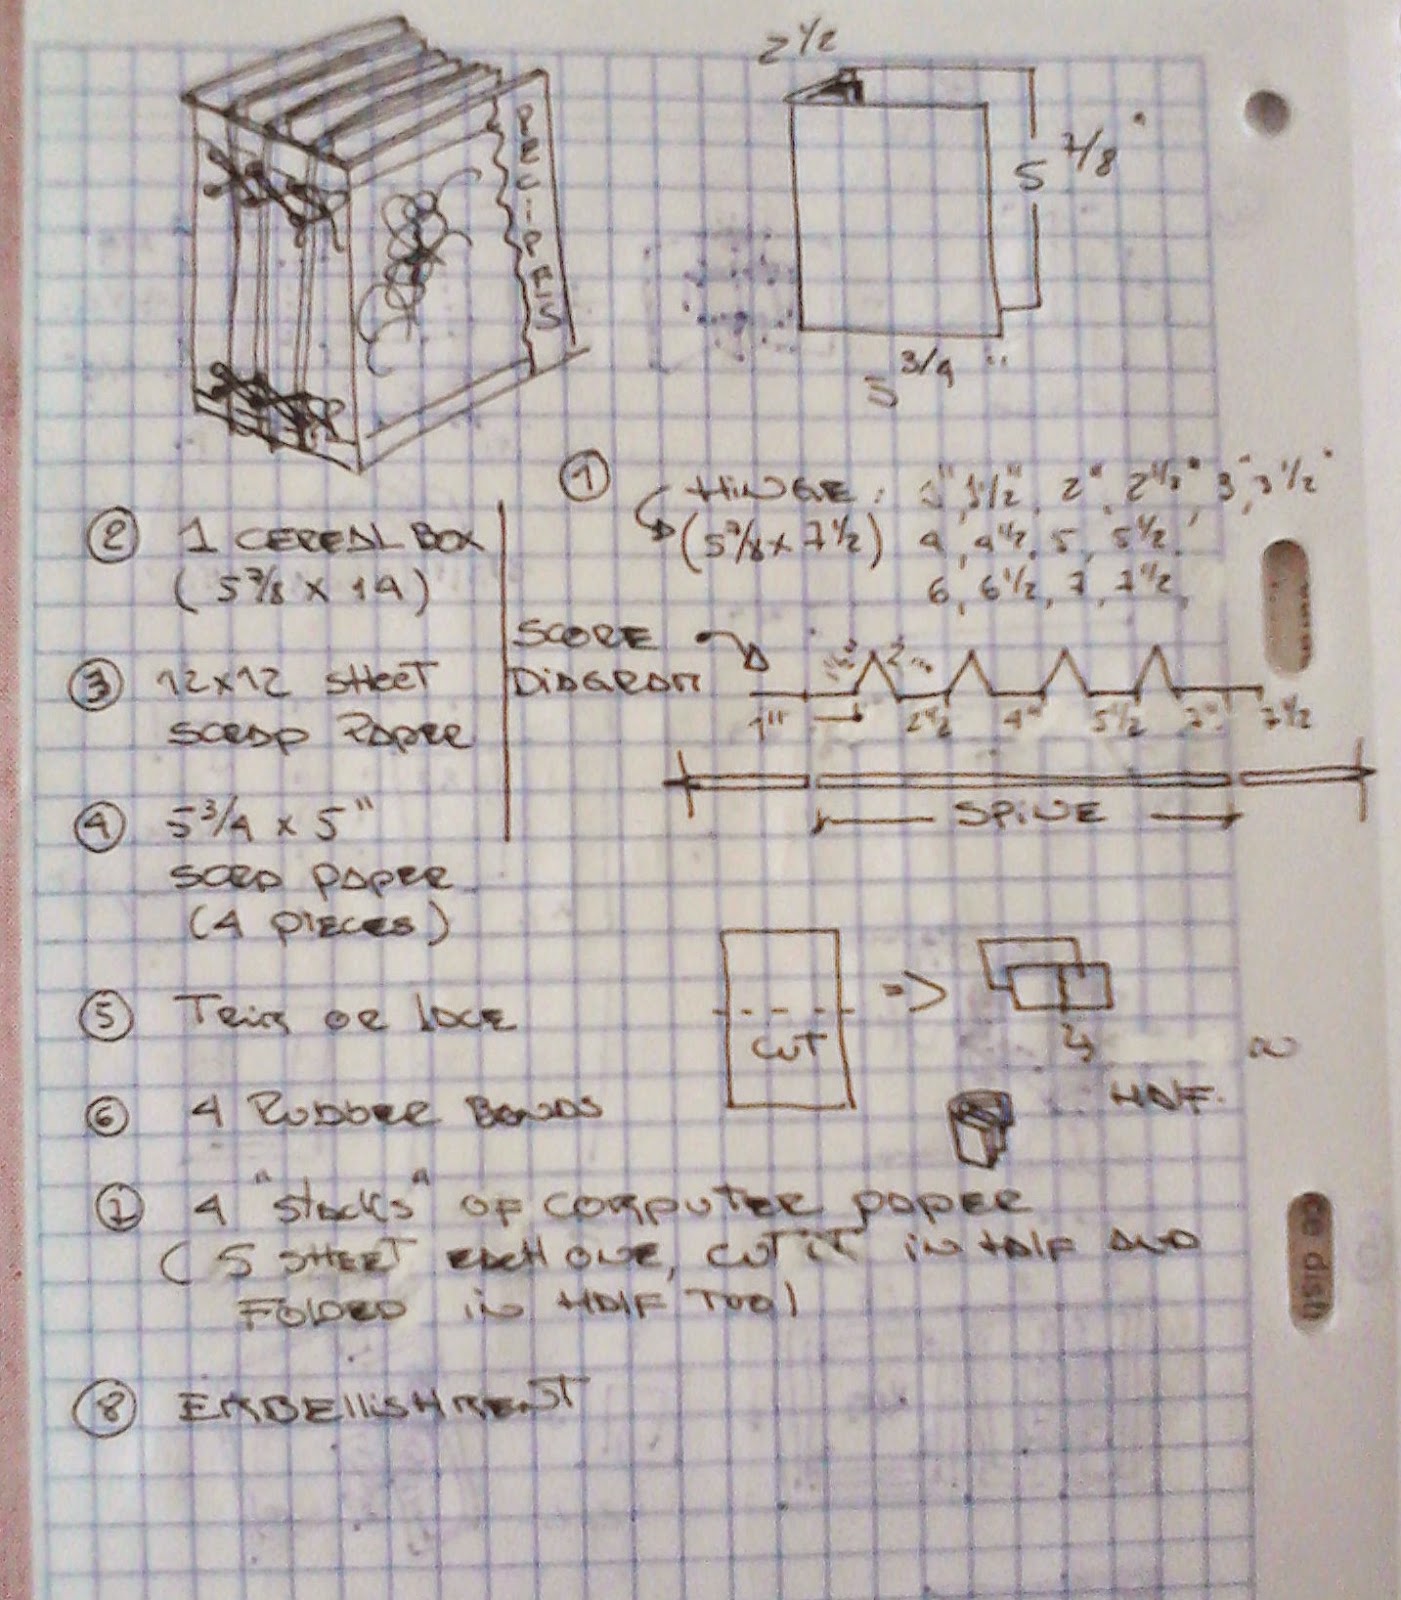 2 1/2
5 7/8"
5 3/4"
① HINGE: 1", 1 1/2", 2", 2 1/2", 3", 3 1/2"
(5 7/8 x 7 1/2) 4, 4 1/2, 5, 5 1/2,
6, 6 1/2, 7, 7 1/2,
② 1 CEREAL BOX
(5 7/8 x 14)
SCORE
DIAGRAM
1" 2 1/2 4" 5 1/2 7" 7 1/2
SPINE
③ 12x12 SHEET
SCRAP PAPER
④ 5 3/4 x 5"
SCRAP PAPER
(4 PIECES)
CUT
⑤ TRIM OR LACE
HALF.
⑥ 4 RUBBER BANDS
4 "STACKS" OF COMPUTER PAPER
(5 SHEET EACH ONE, CUT IT IN HALF AND
FOLDED IN HALF TOO)
⑧ EMBELLISHMENT
ce disti